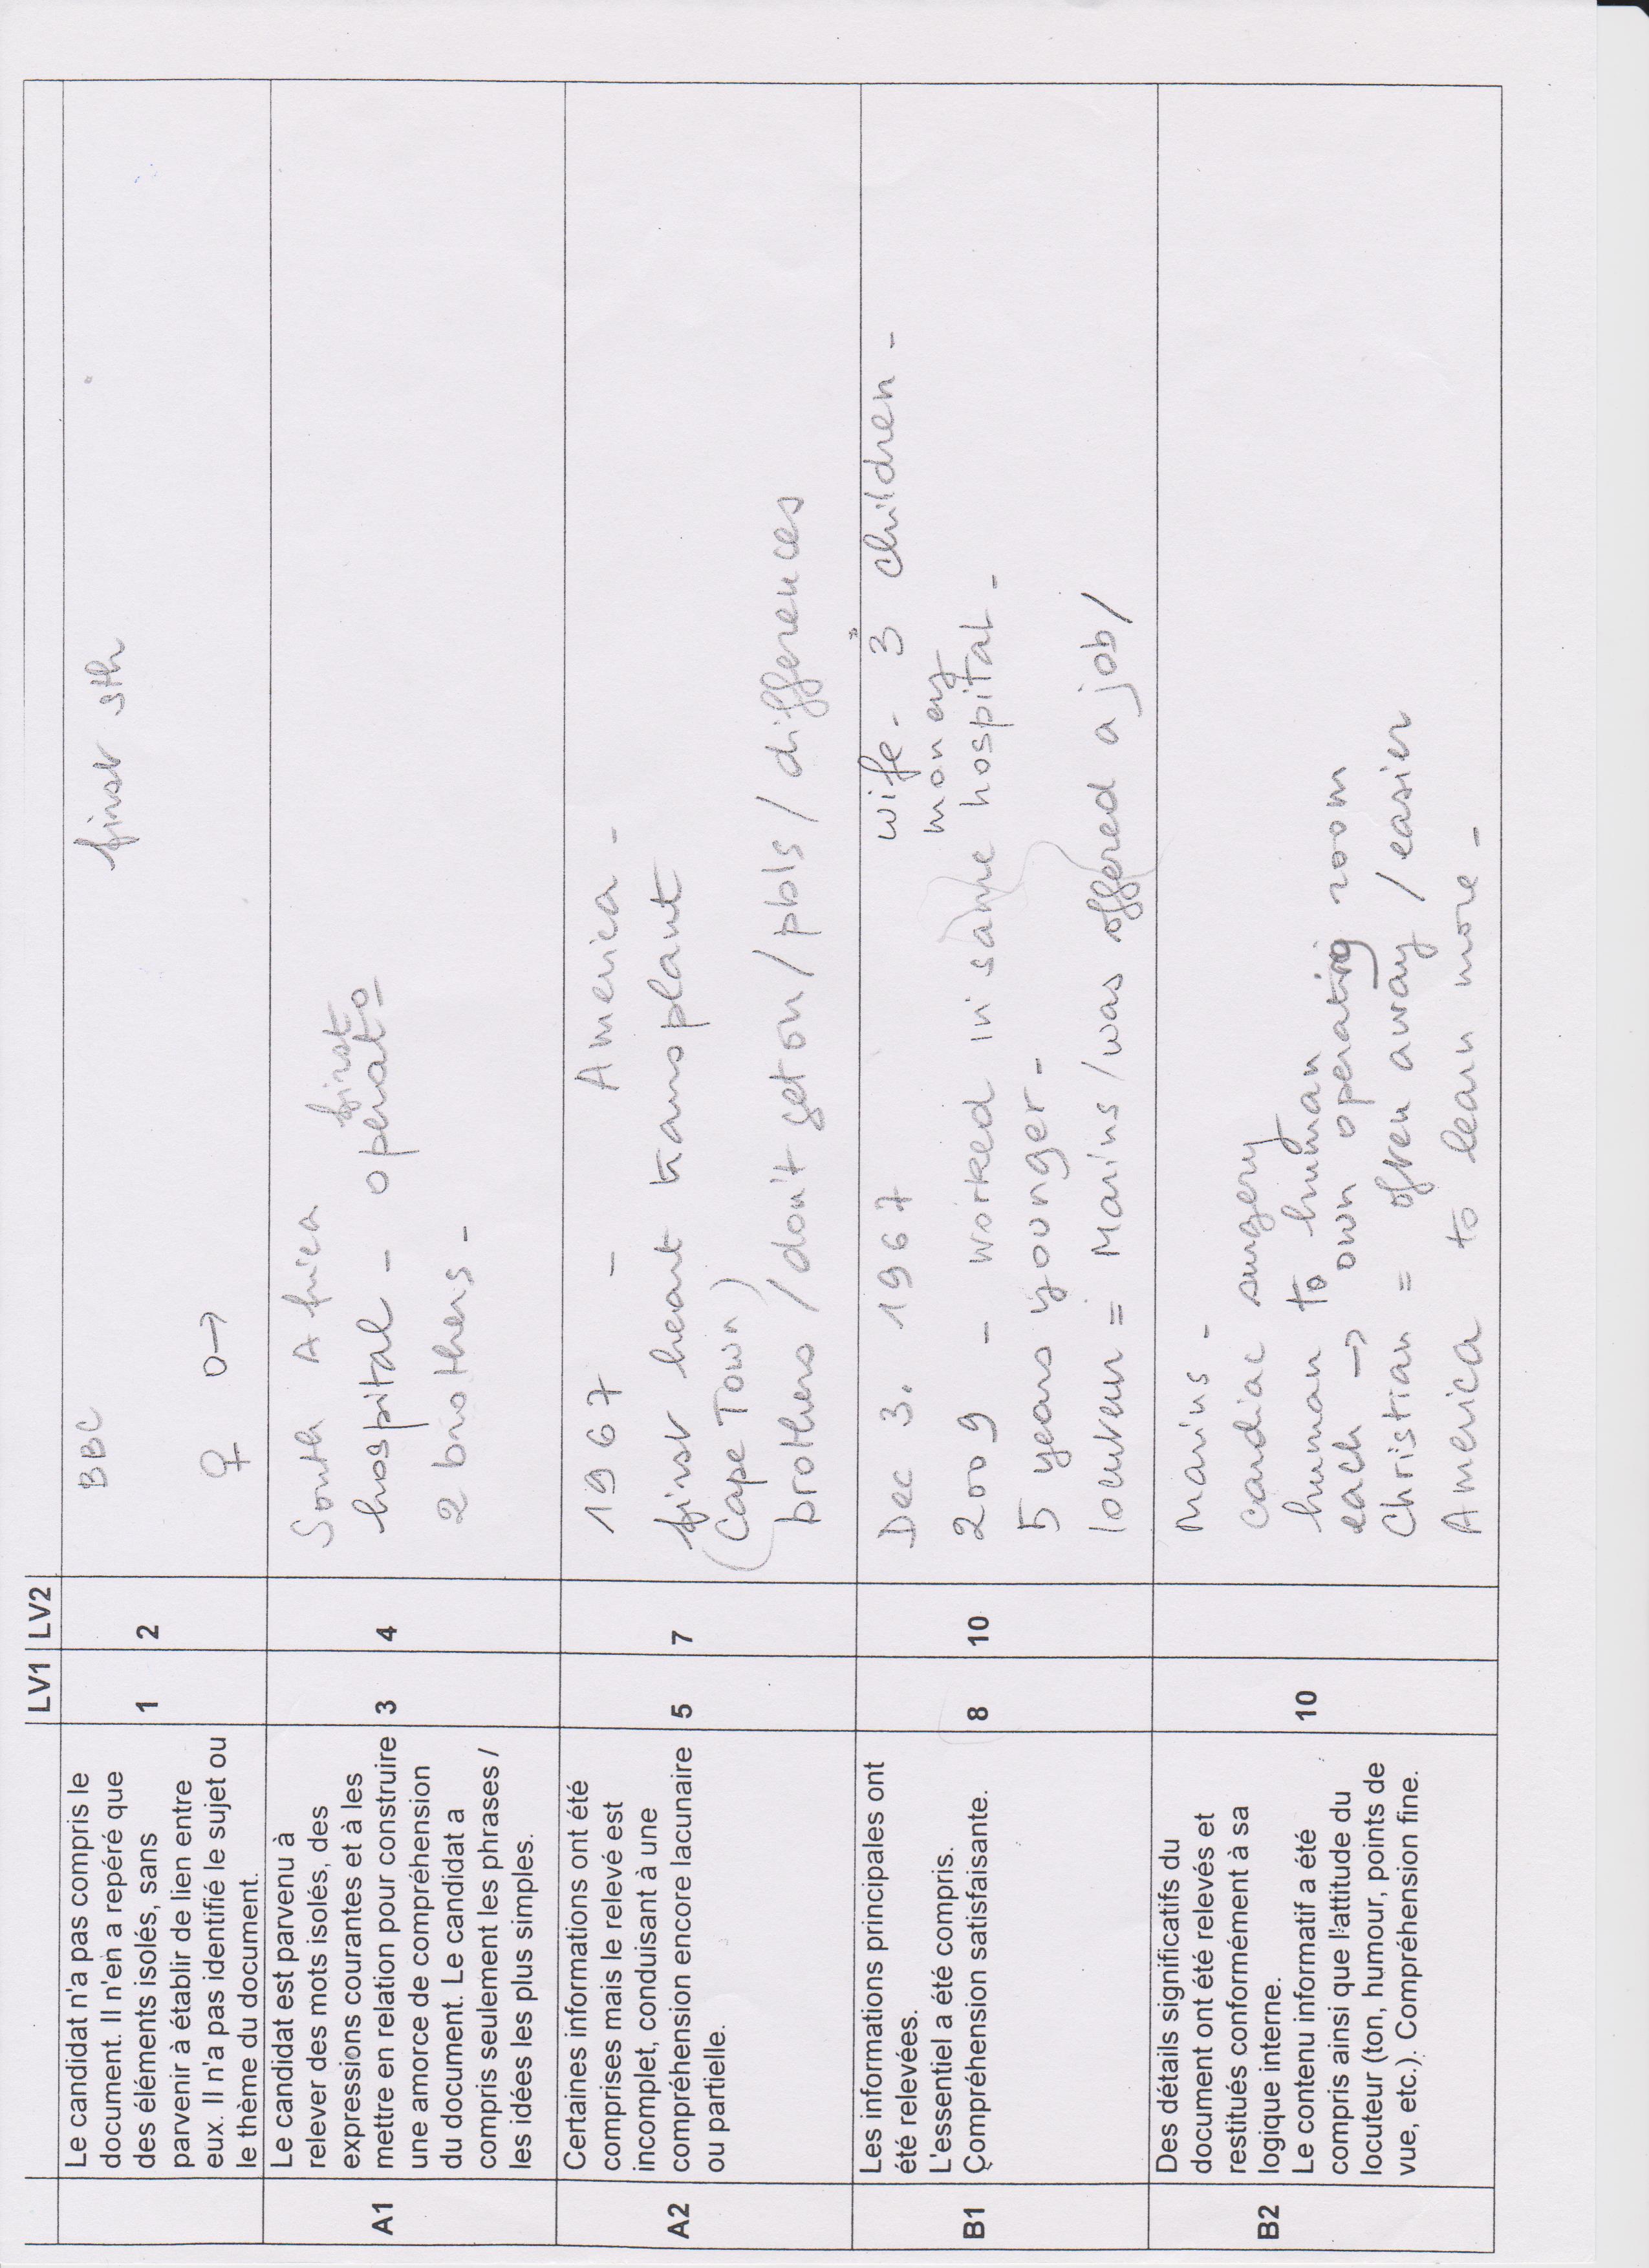 LV1 LV2
Le candidat n'a pas compris le
document. Il n'en a repéré que
des éléments isolés, sans
parvenir à établir de lien entre
eux. Il n'a pas identifié le sujet ou
le thème du document.
1
2
BBC
first sth
♀ →
A1
Le candidat est parvenu à
relever des mots isolés, des
expressions courantes et à les
mettre en relation pour construire
une amorce de compréhension
du document. Le candidat a
compris seulement les phrases /
les idées les plus simples.
3
4
South Africa
first
hospital - operat°
2 brothers -
A2
Certaines informations ont été
comprises mais le relevé est
incomplet, conduisant à une
compréhension encore lacunaire
ou partielle.
5
7
1967 - America -
first heart transplant
(Cape Town)
brothers / don't get on / pbls / differences
B1
Les informations principales ont
été relevées.
L'essentiel a été compris.
Compréhension satisfaisante.
8
10
Dec 3. 1967 wife - 3 children -
money
2009 - worked in same hospital -
5 years younger -
locuteur = Marius / was offered a job /
B2
Des détails significatifs du
document ont été relevés et
restitués conformément à sa
logique interne.
Le contenu informatif a été
compris ainsi que l'attitude du
locuteur (ton, humour, points de
vue, etc.). Compréhension fine.
10
Marius -
cardiac surgery
human to human
each → own operating room
Christian = often away / easier
America to learn more -